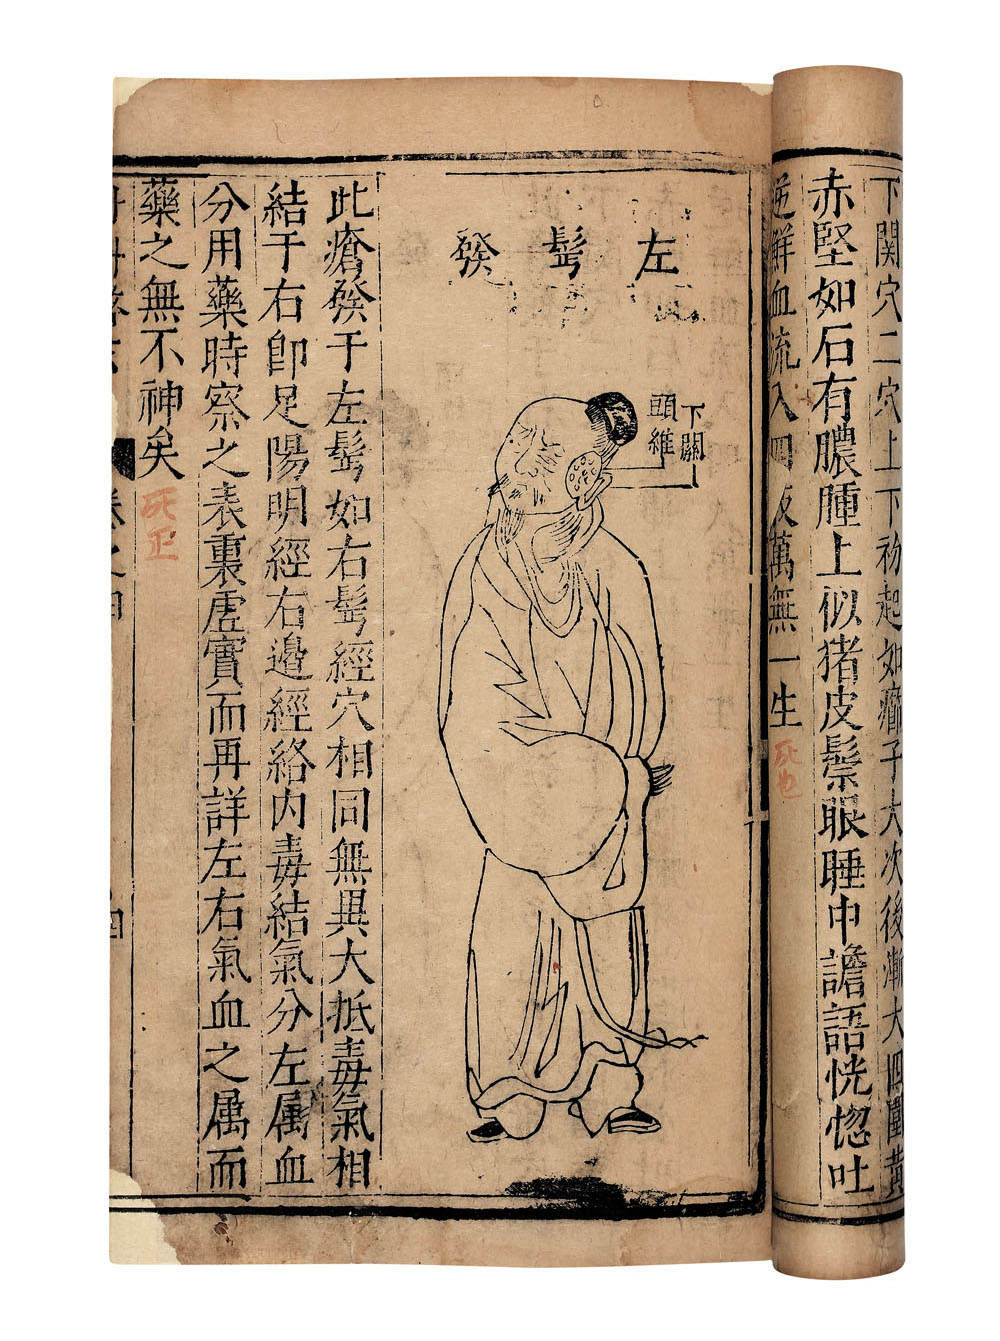 下関穴二穴上下初起如癤子大次後漸大四圍黄
赤堅如石有膿腫上似猪皮鬃眼睡中譫語恍惚吐
逆鮮血流入四肢萬無一生
死也
左髩發
下關
頭維
此瘡發于左髩如右髩經穴相同無異大抵毒氣相
結于右卽足陽明經右邉經絡内毒結氣分左属血
分用藥時察之表裏虚實而再詳左右氣血之属而
藥之無不神矣
死正
卷之四
四